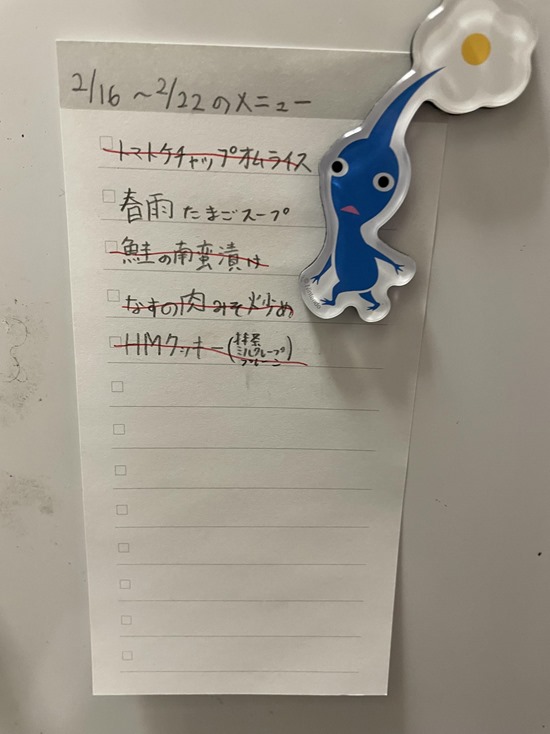 2/16〜2/22のメニュー
トマトケチャップオムライス
春雨たまごスープ
鮭の南蛮漬け
なすの肉みそ炒め
HMクッキー(抹茶
ミルクレープ
プレーン)